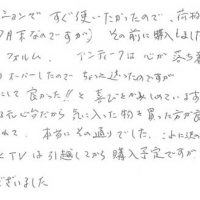 ションで すぐ使いたかったので、荷物
7月末なのですが) その前に購入しました
フォルム、 インテークは 心が落ち着
オーバーしたので ちょっと迷ったのですが
にして 良かった!! と 喜びとかみしめています
気に入った物を買った方が良
れて、 本当に その通りでした。
とTVは引越してから 購入予定ですが
ございました